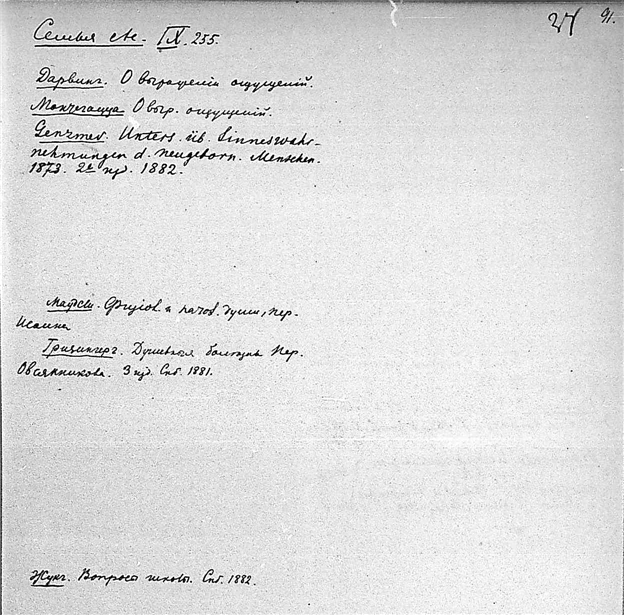 91.
Семья etc. IX. 255.
Дарвинъ. О выраженіи ощущеній.
Мантегацца О выр. ощущеній.
Genzmer. Unters. üb. Sinneswahr-
nehmungen d. neugeborn. Menschen.
1873. 2е изд. 1882.
Маудсли. Физіол. и патол. души, пер.
Исаина
Гризингеръ. Душевныя болѣзни Пер.
Овсянникова. 3 изд. Спб. 1881.
Жукъ. Вопросы школы. Спб. 1882.